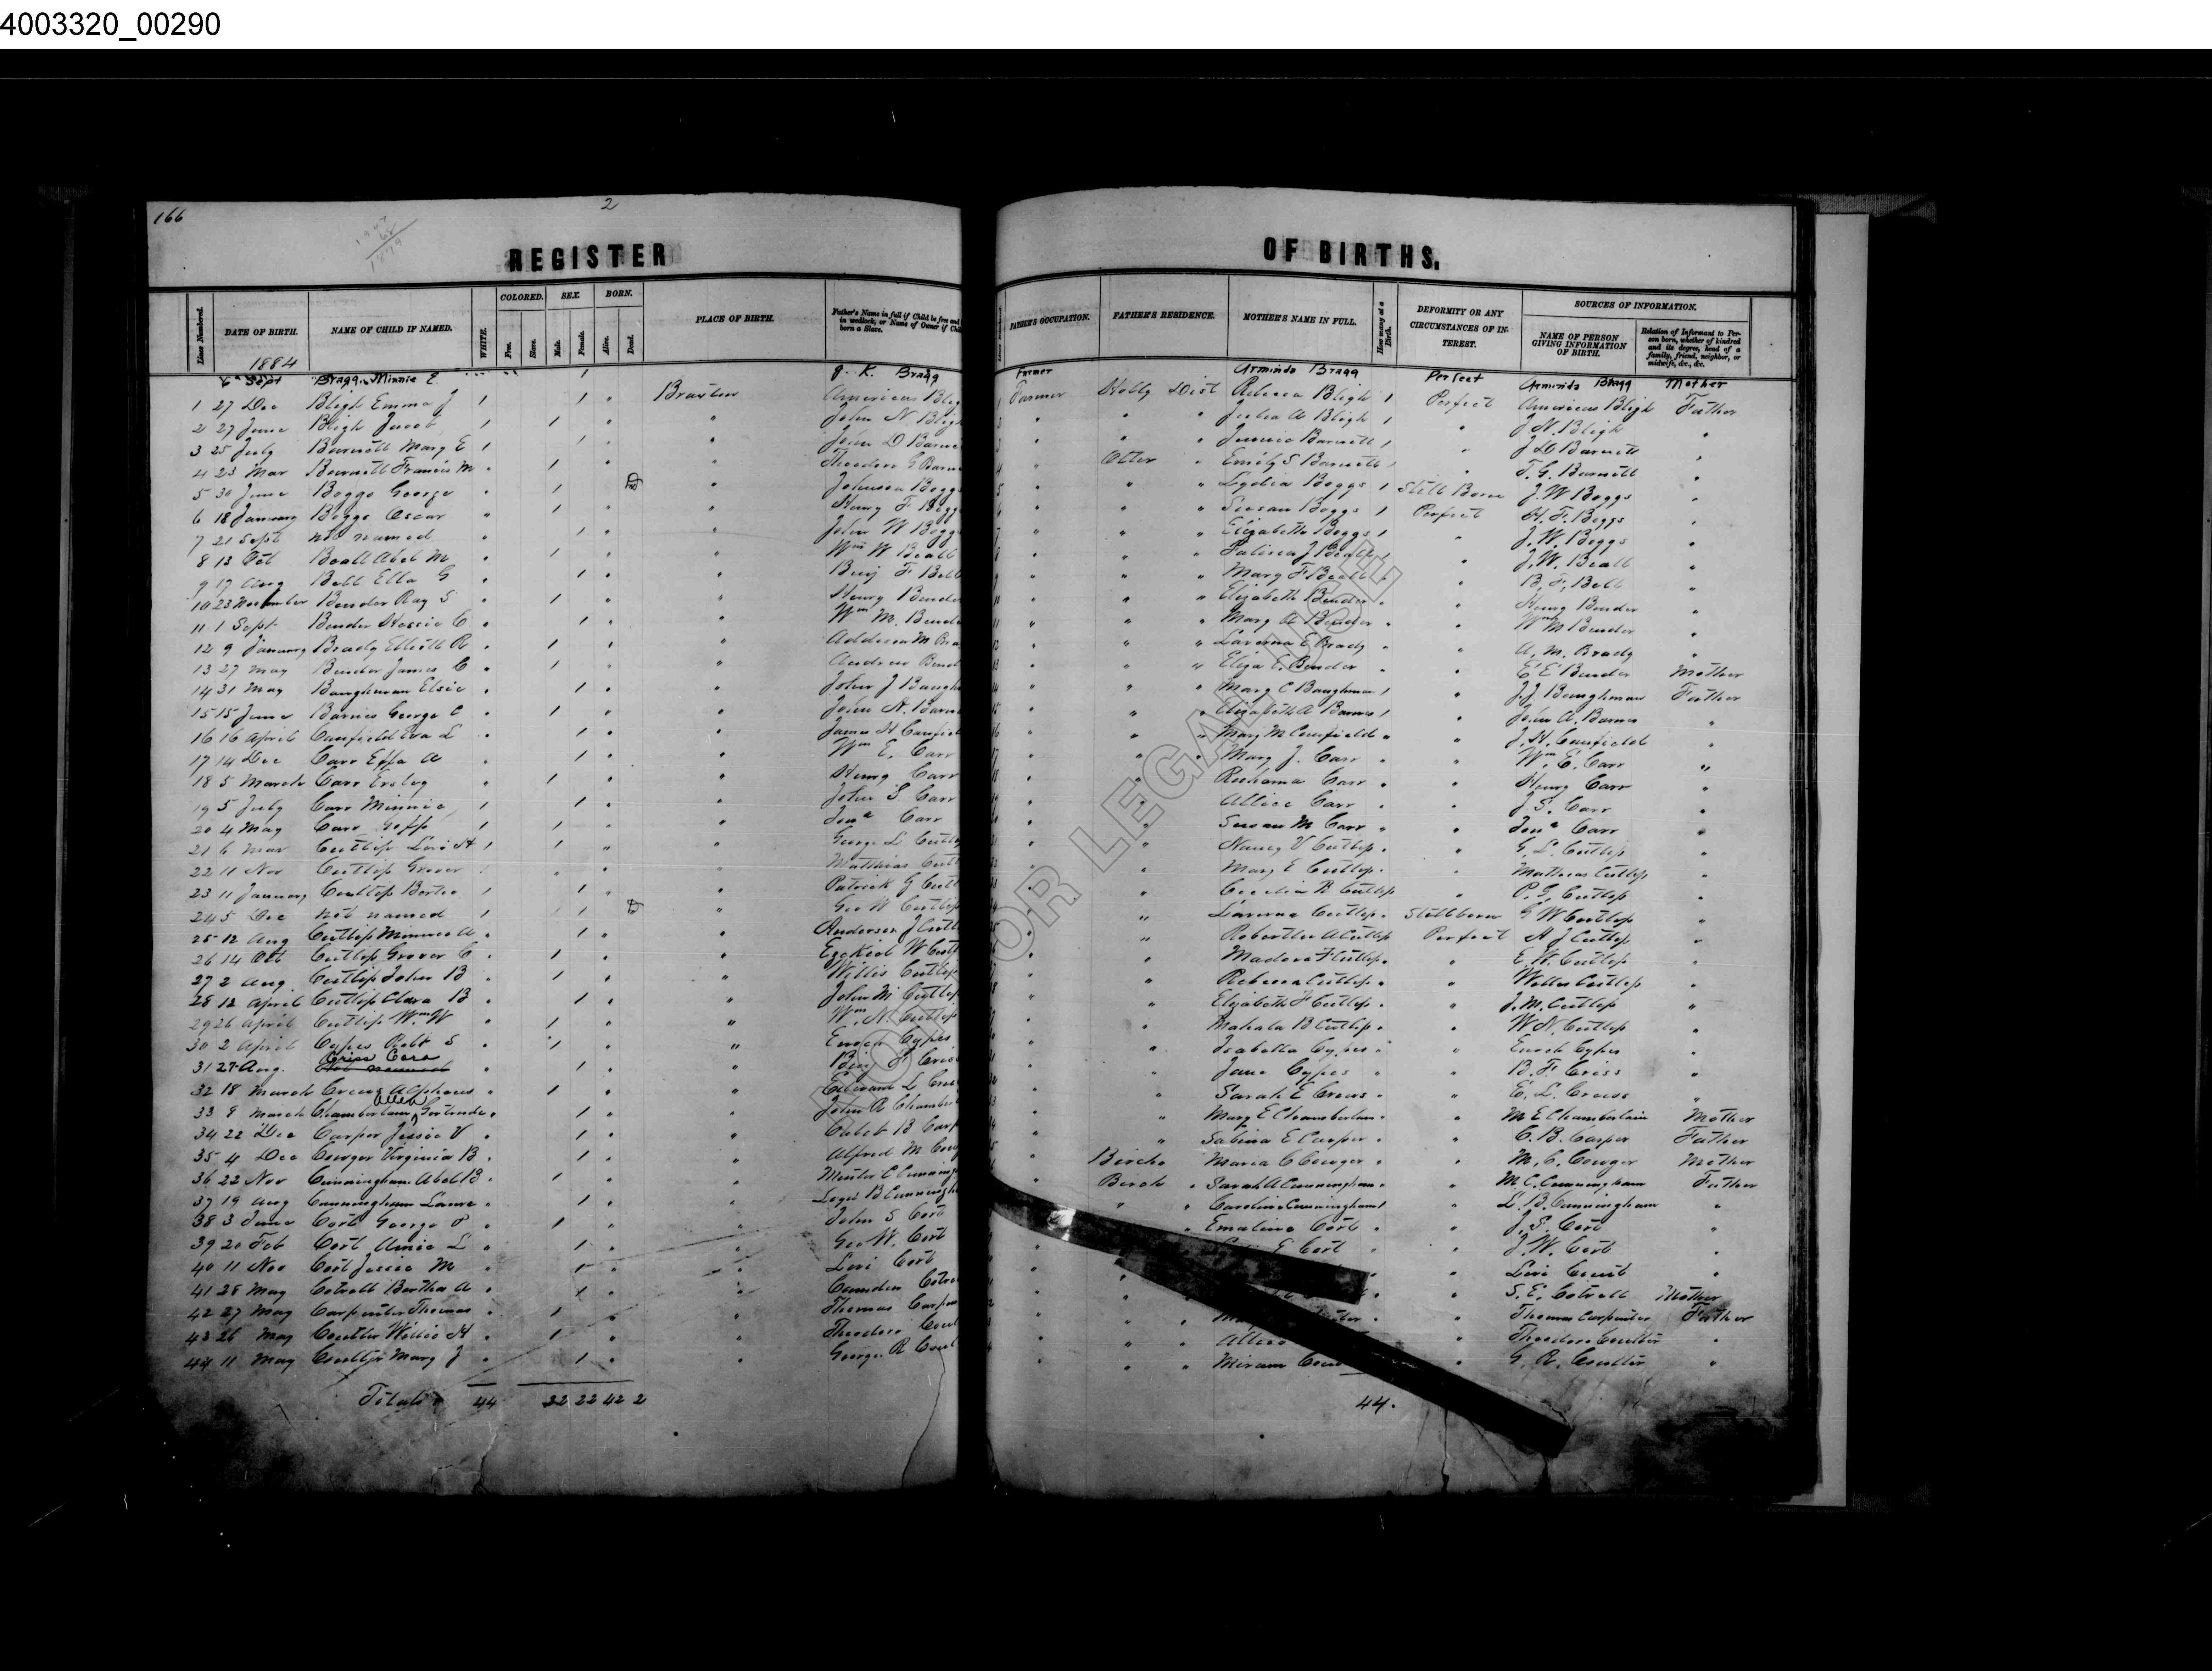 4003320_00290
166
2
REGISTER OF BIRTHS.
Lines Numbered. DATE OF BIRTH. NAME OF CHILD IF NAMED. WHITE. COLORED. Free. Slave. SEX. Male. Female. BORN. Alive. Dead. PLACE OF BIRTH. Father's Name in full if Child be free and in wedlock, or Name of Owner if Chi born a Slave. FATHER'S OCCUPATION. FATHER'S RESIDENCE. MOTHER'S NAME IN FULL. How many at a Birth. DEFORMITY OR ANY CIRCUMSTANCES OF INTEREST. SOURCES OF INFORMATION. NAME OF PERSON GIVING INFORMATION OF BIRTH. Relation of Informant to Person born, whether of kindred and its degree, head of a family, friend, neighbor, or midwife, &c., &c.
1884
6" Sept Bragg, Minnie E. J. K. Bragg Farmer Arminda Bragg Perfect Arminda Bragg Mother
1 27 Dec Bligh Emma J Braxton Americus Blig Farmer Holly Dist Rebecca Bligh Perfect Americus Bligh Father
2 27 June Bligh Jacob John N. Bligh Julia A Bligh J N. Bligh
3 25 July Barnett Mary E John D Barne Jennie Barnett J D Barnett
4 23 Mar Barnett Francis M Theodore G Barn Otter Emily S Barnett T. G. Barnett
5 30 June Boggs George Johnson Boggs Lydia Boggs Still Born J. W Boggs
6 18 January Boggs Oscar Henry F Bogg Susan Boggs Perfect H. F. Boggs
7 21 Sept not named John W Bogg Elizabeth Boggs J. W. Boggs
8 13 Oct Beall Abel M Wm W Beall J. W. Beall
9 17 Aug Bell Ella G Benj F Bell Mary F B. F. Bell
10 23 November Bender Ray S Henry Bende Elizabeth Bender Henry Bender
11 1 Sept Bender Hessie C Wm M. Bend Mary A Bender Wm M Bender
12 9 January Brady Elliott R Addison M Bra Laverna E Brady A. M. Brady
13 27 May Bender James C Andrew Bend Eliza E. Bender E E Bender Mother
14 31 May Baughman Elsie John J Baugh Mary C Baughman J. J Baughman Father
15 15 June Barnes George C John A. Barn Elizabeth A Barnes John A. Barnes
16 16 April Canfield Eva L James H Canfiel Mary M Canfield J. H. Canfield
17 14 Dec Carr Effa A Wm E. Carr Mary J. Carr Wm E. Carr
18 5 March Carr Ersley Henry Carr Ruhama Carr Henry Carr
19 5 July Carr Minnie John S Carr Allice Carr J. S. Carr
20 4 May Carr Goff Jona Carr Susan M Carr Jona Carr
21 6 Mar Cutlip Levi H George L Cutlip Nancy V Cutlip G. L. Cutlip
22 11 Nov Cutlip Grover Matthias Cutl Mary E Cutlip Mathias Cutlip
23 11 January Cutlip Bertie Patrick G Cutl Cecelia R Cutlip P. G. Cutlip
24 5 Dec not named Geo W Cutlip Laverna Cutlip Stillborn G W Cutlip
25 12 Aug Cutlip Minnie A Anderson J Cutl Perfect A J Cutlip
26 14 Oct Cutlip Grover C Ezekiel W Cutl Madora F Cutlip E. W. Cutlip
27 2 Aug. Cutlip John B Willis Cutlip Rebecca Cutlip Willis Cutlip
28 12 April Cutlip Clara B John M Cutlip Elizabeth F Cutlip J. M. Cutlip
29 26 April Cutlip Wm W Wm N. Cutlip Mahala B Cutlip W N. Cutlip
30 2 April Cyphes Robt S Enoch Cyphes Isabella Cyphes Enoch Cyphes
31 27 Aug. Criss Cora Benj F Criss Jane B. F. Criss
32 18 March Crews Alpheus L Sarah E Crews E. L. Crews
33 8 March Chamberlain Allen Gertrude John R Chamber Mary E Chamberlain M E Chamberlain Mother
34 22 Dec Carper Jessie V Caleb B Carp Sabina E Carper C. B. Carper Father
35 4 Dec Conger Virginia B. Alfred M Cong Birch Maria C Conger M. C. Conger Mother
36 22 Nov Cunningham Abel B Minter C Cunning Birch Sarah A Cunningham M C. Cunningham Father
37 19 Aug Cunningham Laura Logn B Cunningh Caroline Cunningham L. B. Cunningham
38 3 June Cort George P John S Cort Emaline Cort J. S. Cort
39 20 Feb Cort Amie L Geo W. Cort E Cort J. W. Cort
40 11 Nov Cort Jessie M Levi Cort Levi Court
41 28 May Cotrell Bertha A Camden Cotre S. E. Cotrell Mother
42 27 May Carpenter Thomas Thomas Carpen Thomas Carpenter Father
43 26 May Coulter Willie H Theodore Coul Allice Theodore Coulter
44 11 May Coulter Mary J George R Coul Miriam G. R. Coulter
Totals 44 22 22 42 2 44.
FOR LEGAL USE